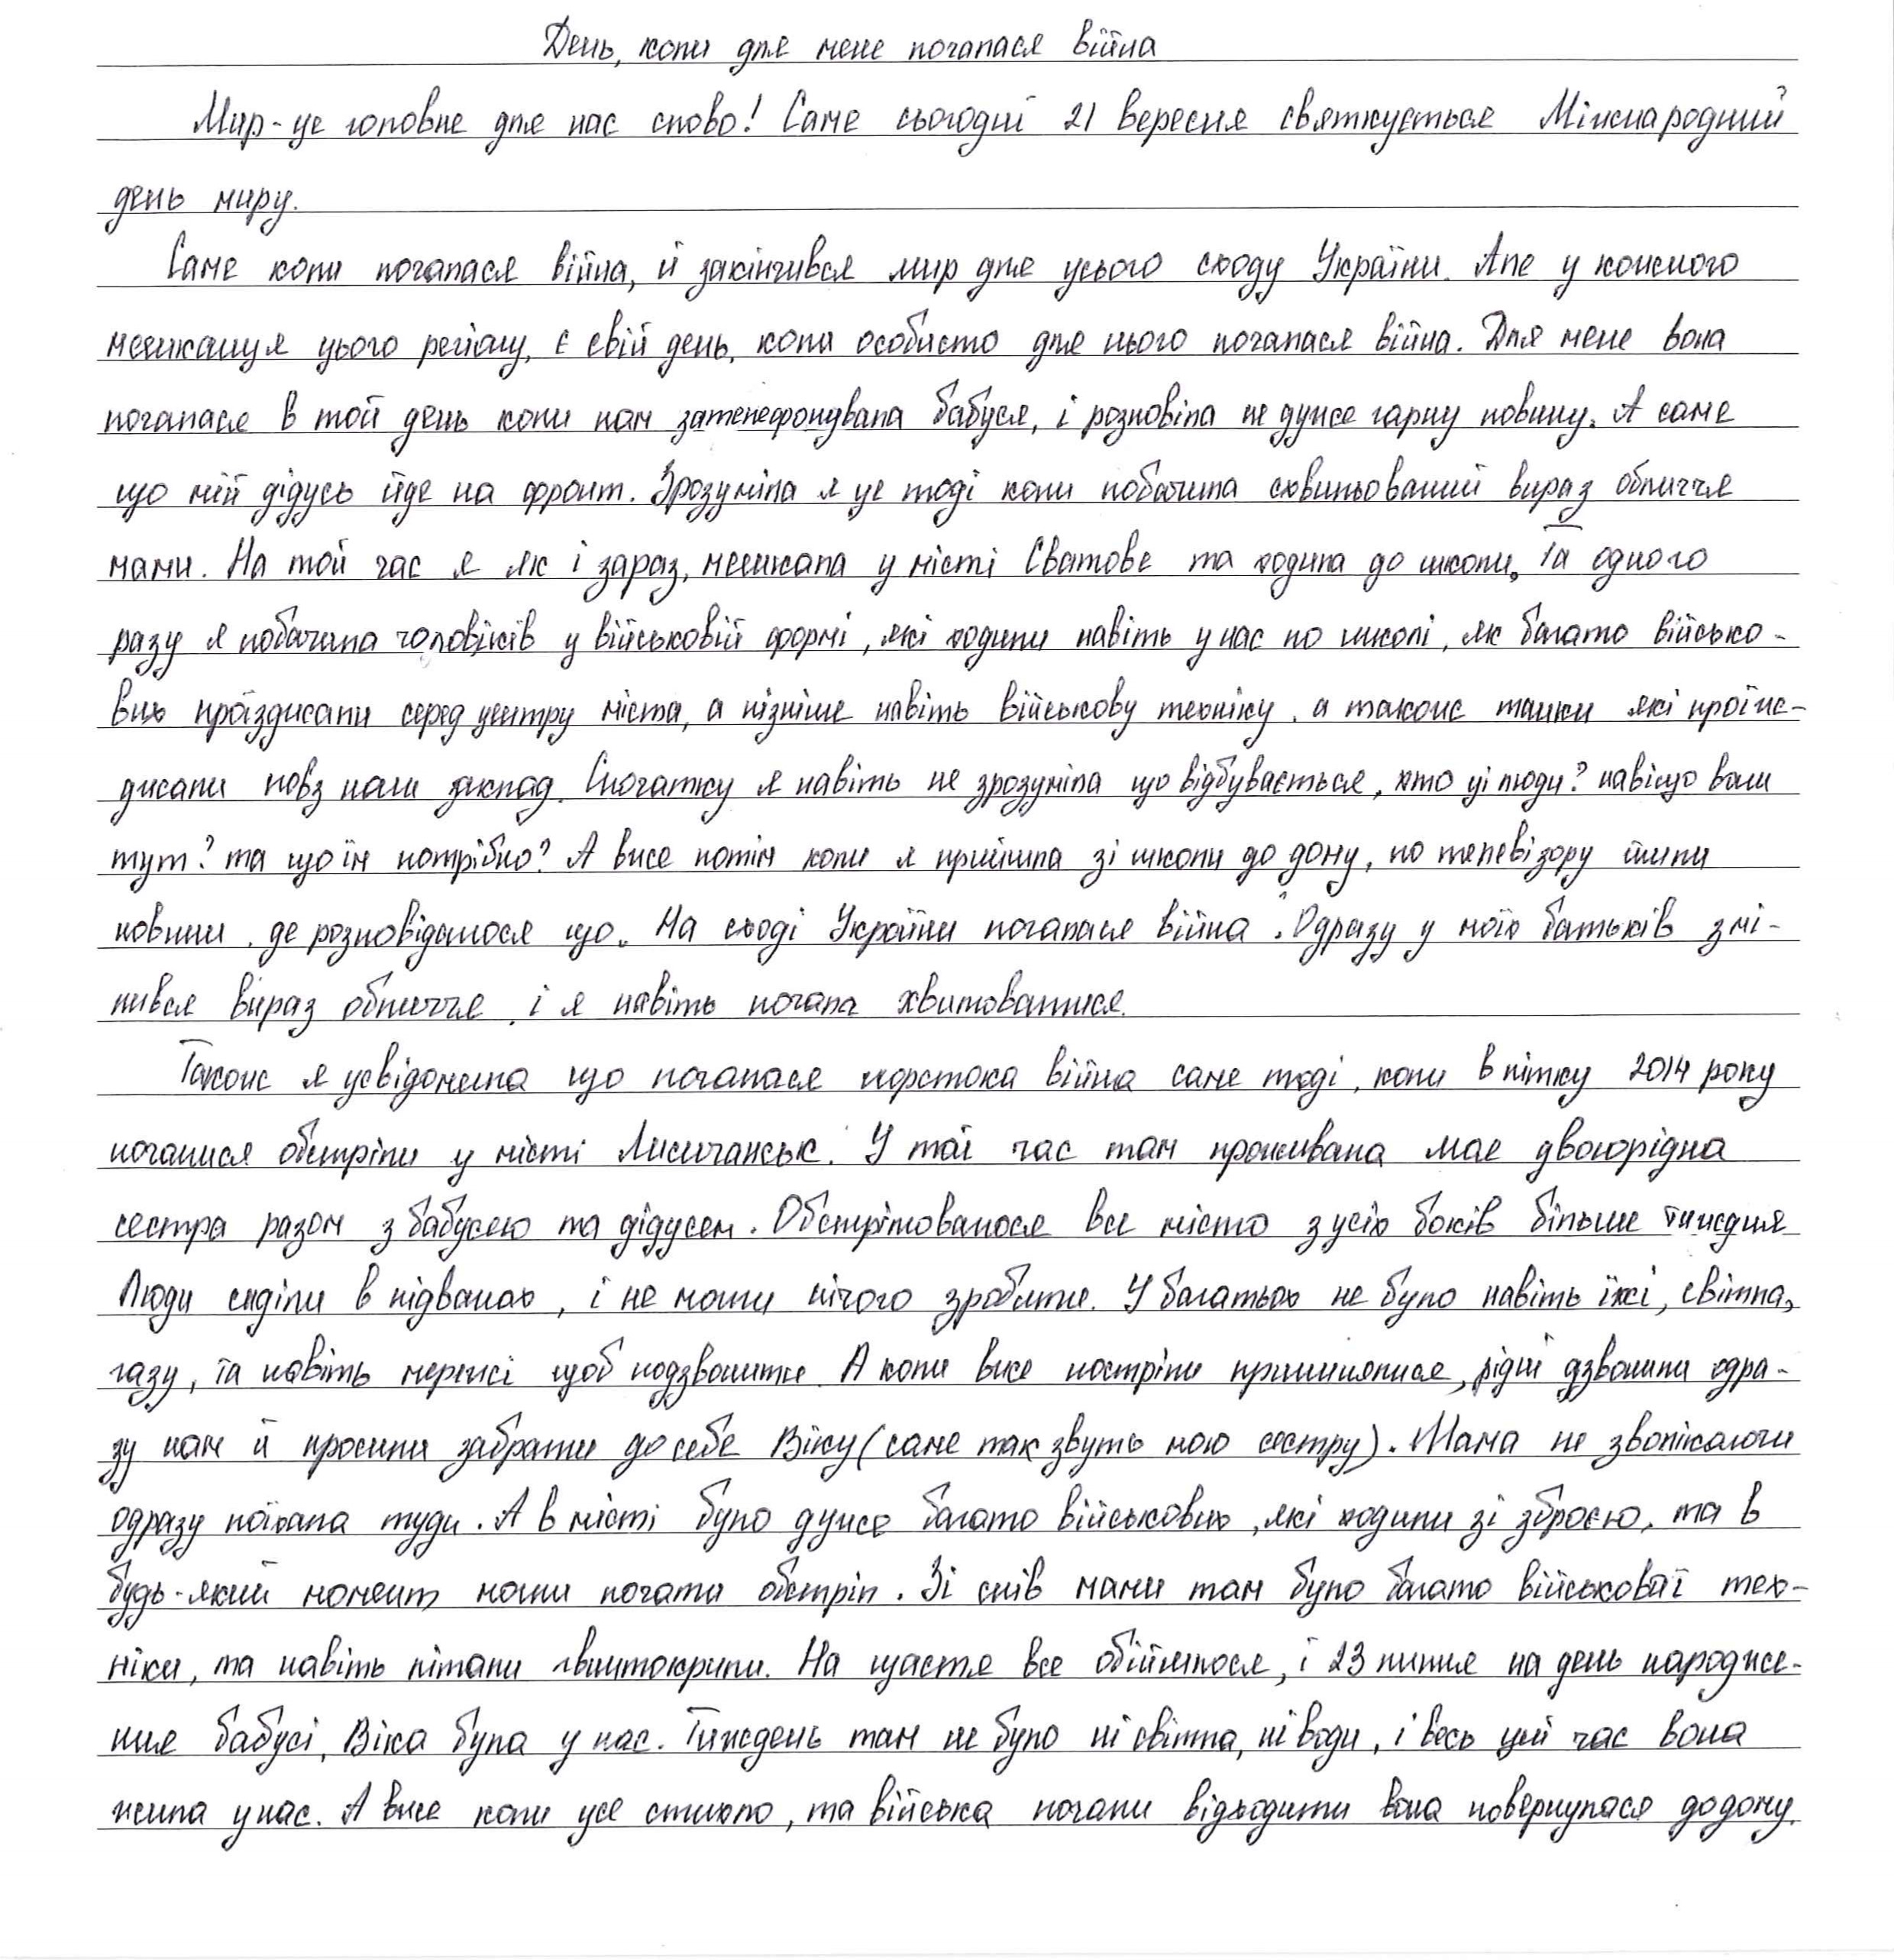 День, коли для мене почалася війна
Мир - це головне для нас слово! Саме сьогодні 21 вересня святкується Міжнародний
день миру.
Саме коли почалася війна, й закінчився мир для усього сходу України. Але у кожного
мешканця цього регіону, є свій день, коли особисто для нього почалася війна. Для мене вона
почалася в той день коли нам зателефонувала бабуся, і розповіла не дуже гарну новину. А саме
що мій дідусь йде на фронт. Зрозуміла я це тоді коли побачила схвильований вираз обличчя
мами. На той час я як і зараз, мешкала у місті Сватове та ходила до школи. Та одного
разу я побачила чоловіків у військовій формі, які ходили навіть у нас по школі, як багато військо-
вих проїзджали серед центру міста, а пізніше навіть військову техніку, а також танки які проїж-
джали повз наш заклад. Спочатку я навіть не зрозуміла що відбувається, хто ці люди? навіщо вони
тут? та що їм потрібно? А вже потім коли я прийшла зі школи до дому, по телевізору йшли
новини, де розповідалося що „На сході України почалася війна". Одразу у моїх батьків змі-
нився вираз обличчя, і я навіть почала хвилюватися.
Також я усвідомила що почалася жорстока війна саме тоді, коли влітку 2014 року
почалися обстріли у місті Лисичанськ. У той час там проживала моя двоюрідна
сестра разом з бабусею та дідусем. Обстрілювалося все місто з усіх боків більше тижня
Люди сиділи в підвалах, і не могли нічого зробити. У багатьох не було навіть їжі, світла,
газу, та навіть мережі щоб подзвонити. А коли вже постріли припинялися, рідні дзвонили одра-
зу нам й просили забрати до себе Віку (саме так звуть мою сестру). Мама не зволікаючи
одразу поїхала туди. А в місті було дуже багато військових, які ходили зі зброєю, та в
будь-який момент могли почати обстріл. Зі слів мами там було багато військової тех-
ніки, та навіть літали гвинтокрили. На щастя все обійшлося, і 23 липня на день народже-
ння бабусі, Віка була у нас. Тиждень там не було ні світла, ні води, і весь цей час вона
жила у нас. А вже коли усе стихло, та війська почали відходити вона повернулася додому.